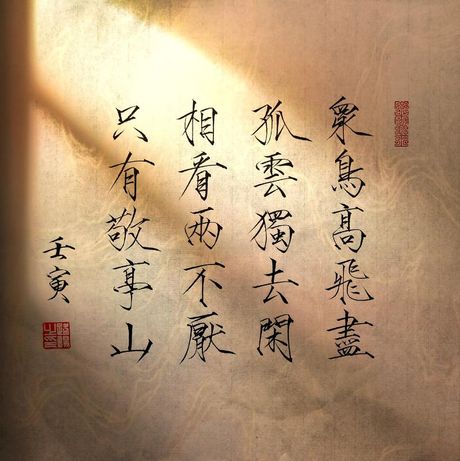 眾鳥高飛盡
孤雲獨去閑
相看兩不厭
只有敬亭山
壬寅